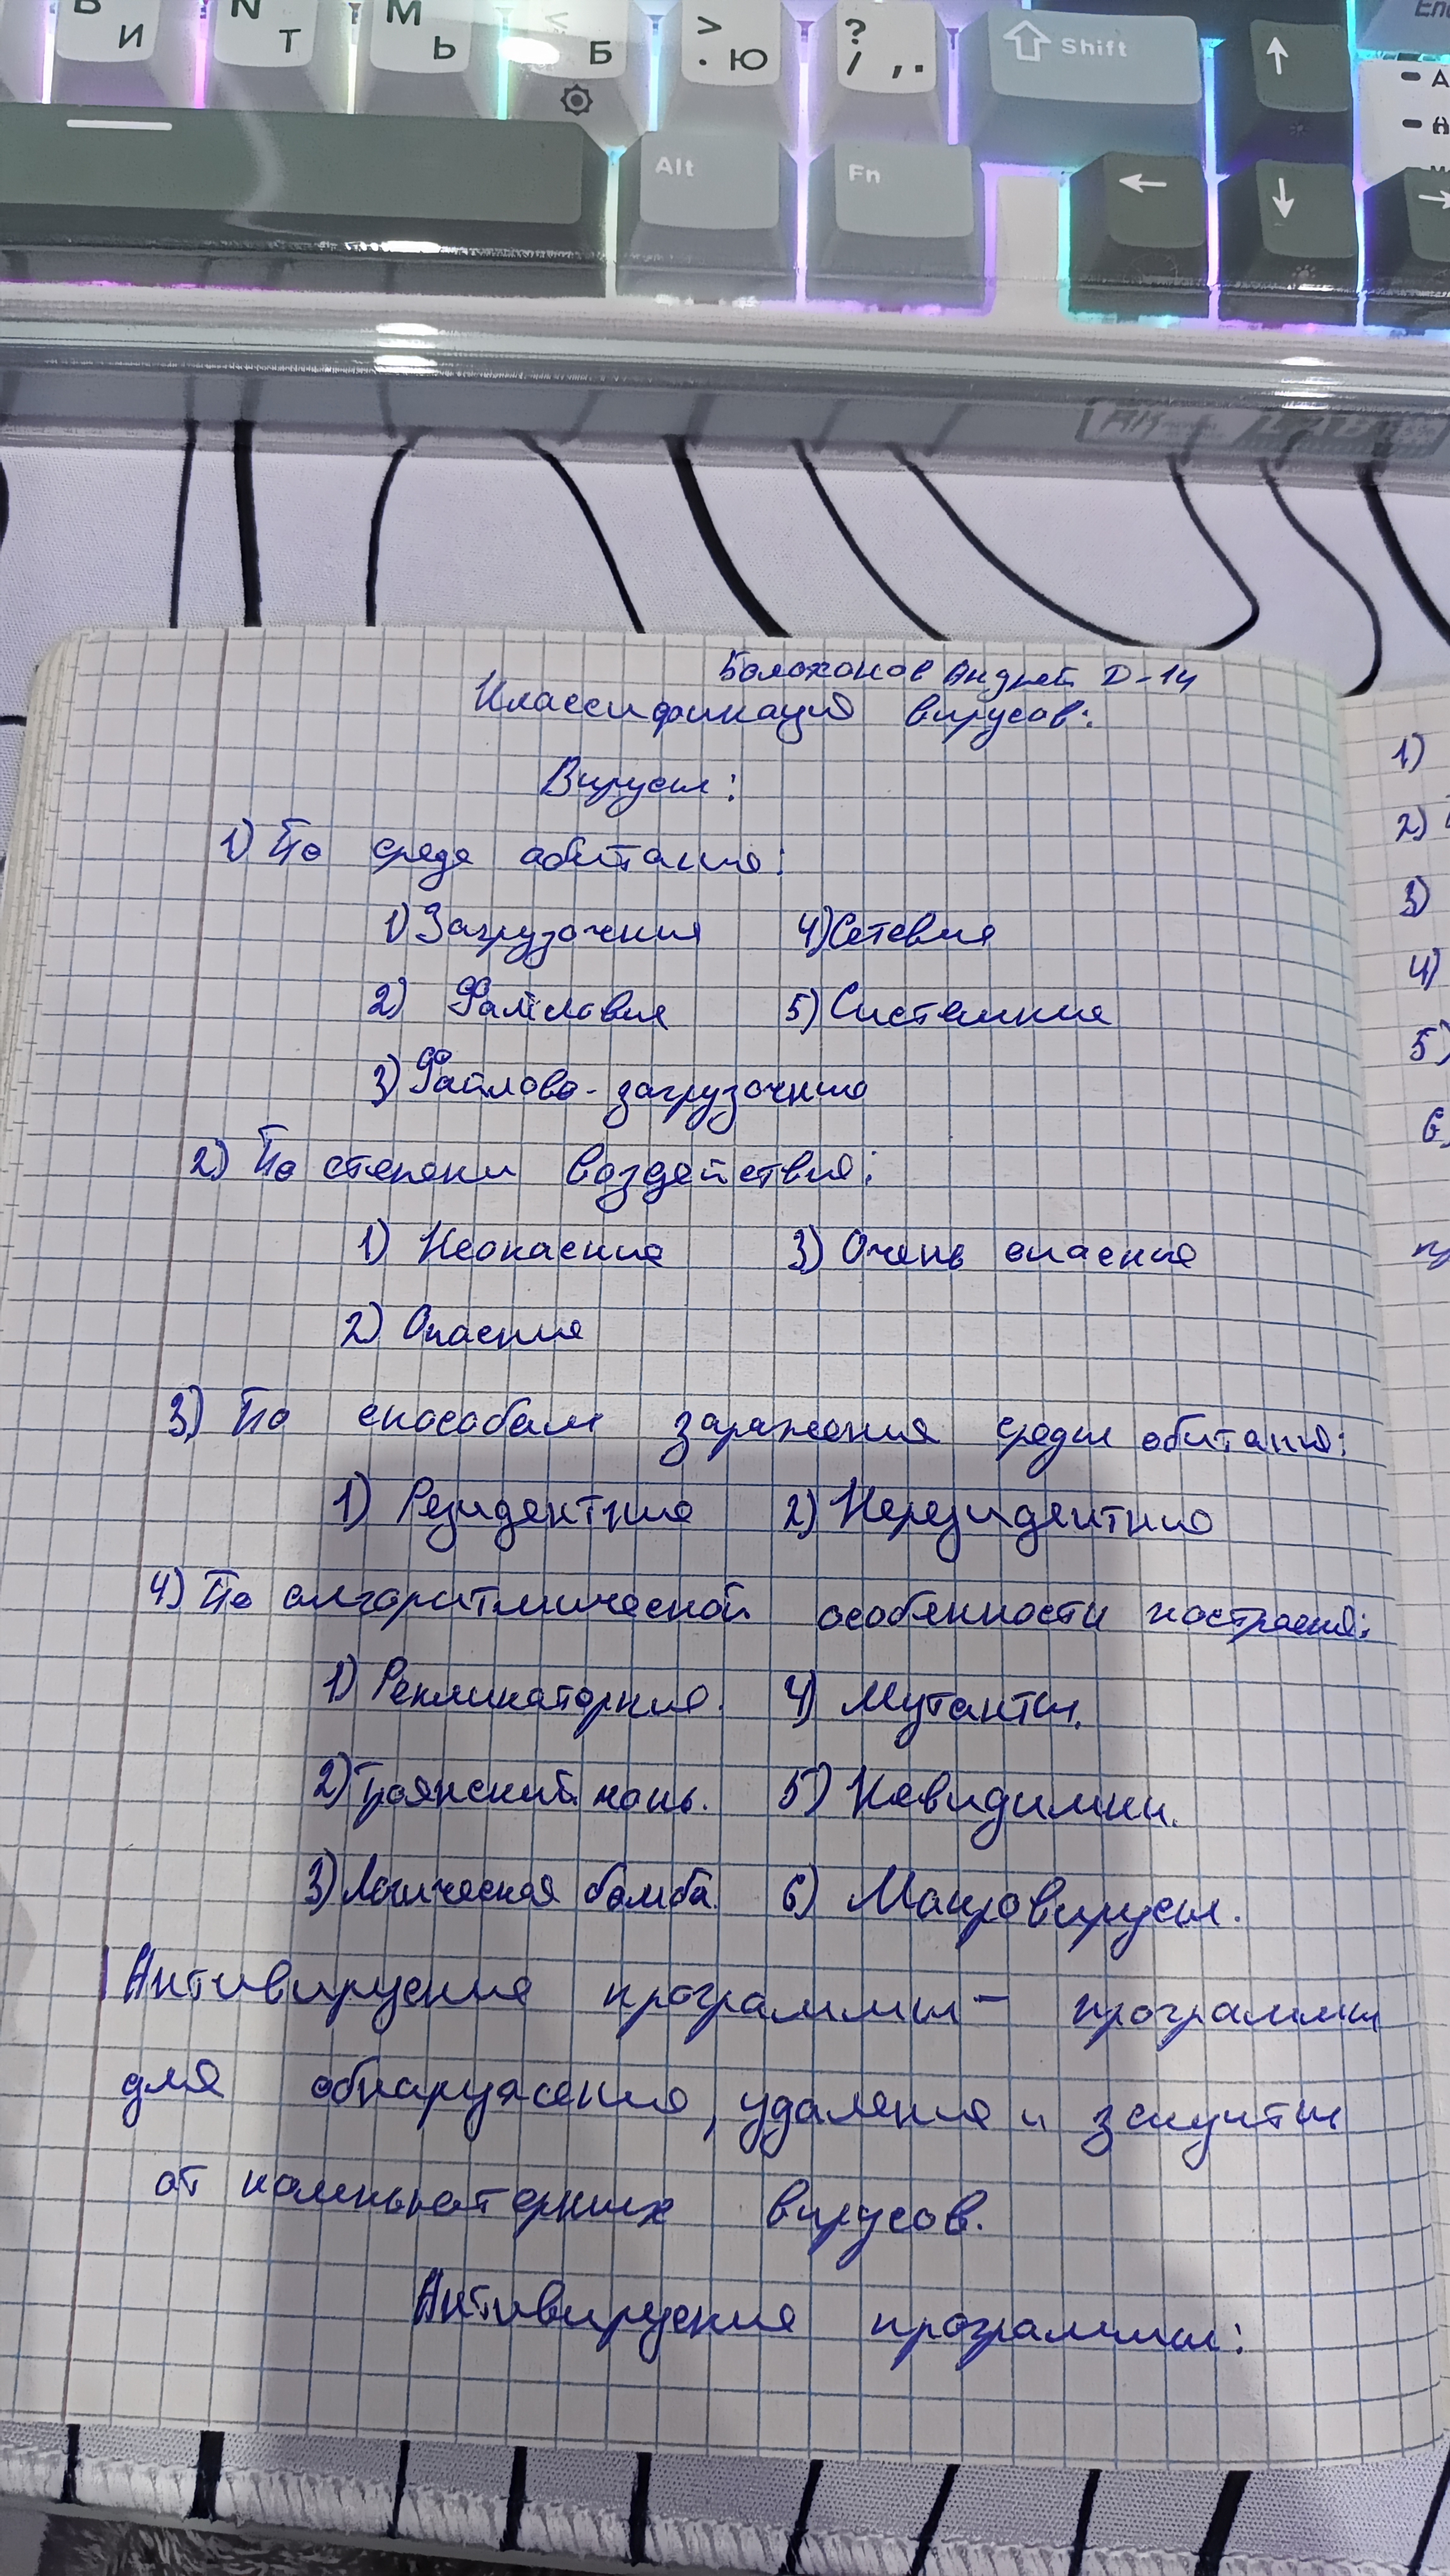 И Т Ь Б > . Ю ? / , . Shift
М
Alt Fn
Болохонов Андрей Д-14
Классификация вирусов:
Вирусы:
1) По среде обитания:
1) Загрузочные 4) Сетевые
2) Файловые 5) Системные
3) Файлово-загрузочные
2) По степени воздействия:
1) Неопасные 3) Очень опасные
2) Опасные
3) По способам заражения среды обитания:
1) Резидентные 2) Нерезидентные
4) По алгоритмической особенности построения:
1) Репликаторные. 4) Мутанты.
2) Троянский конь. 5) Невидимки.
3) Логическая бомба. 6) Макровирусы.
Антивирусные программы - программы
для обнаружения, удаления и защиты
от компьютерных вирусов.
Антивирусные программы:
1)
2)
3)
4)
5)
6)